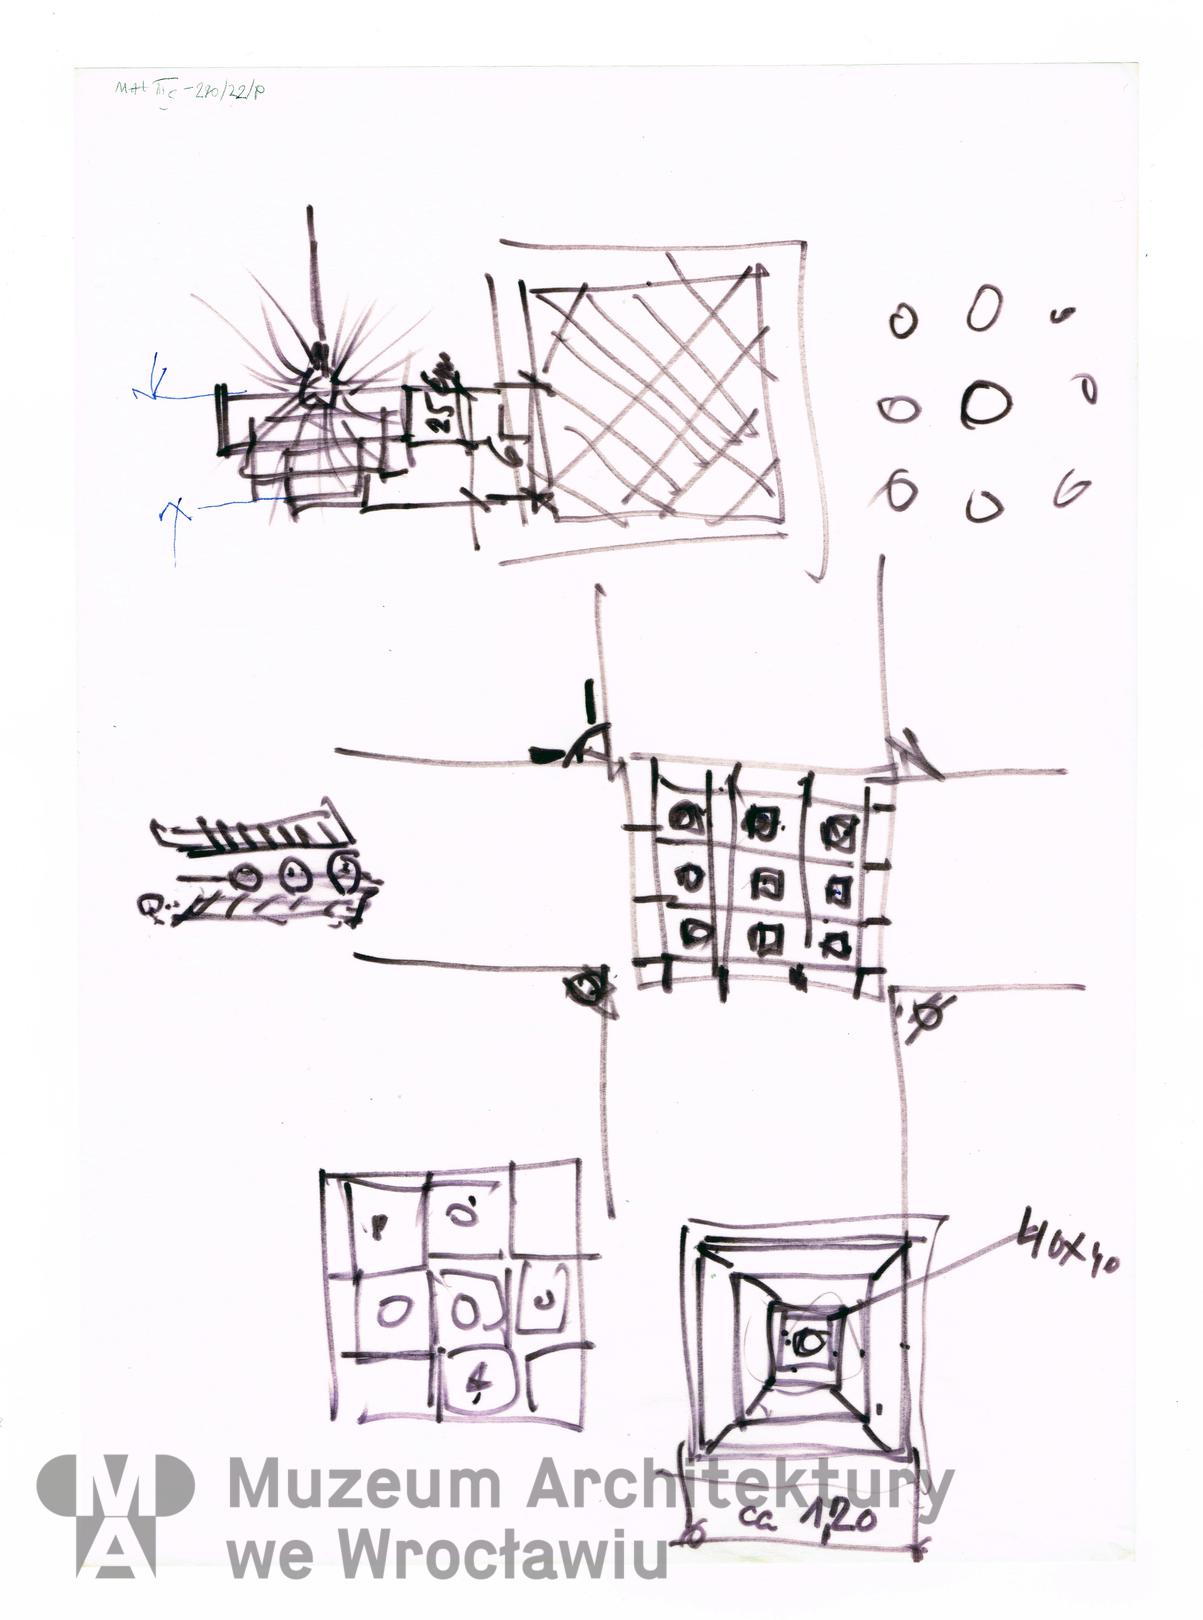 MAt IIIc-270/22/P
25
40x40
ca 1,20
MA
Muzeum Architektury
we Wrocławiu